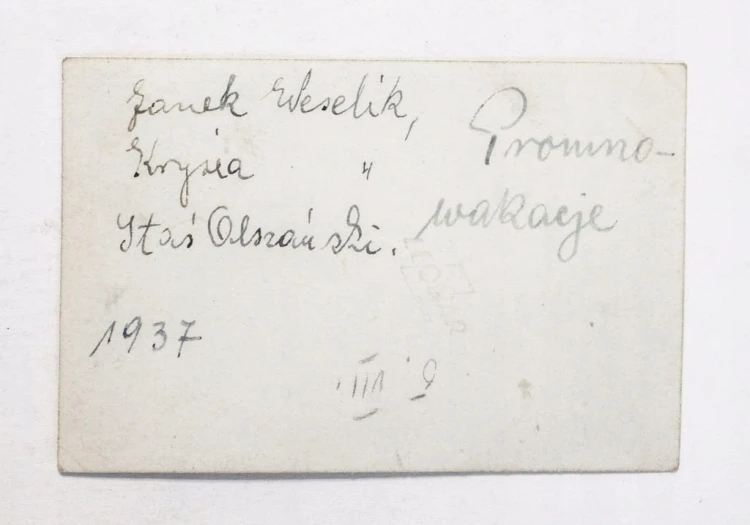 Janek Weselik,
Krysia "
Staś Olszański.
Promno-
wakacje
1937
III